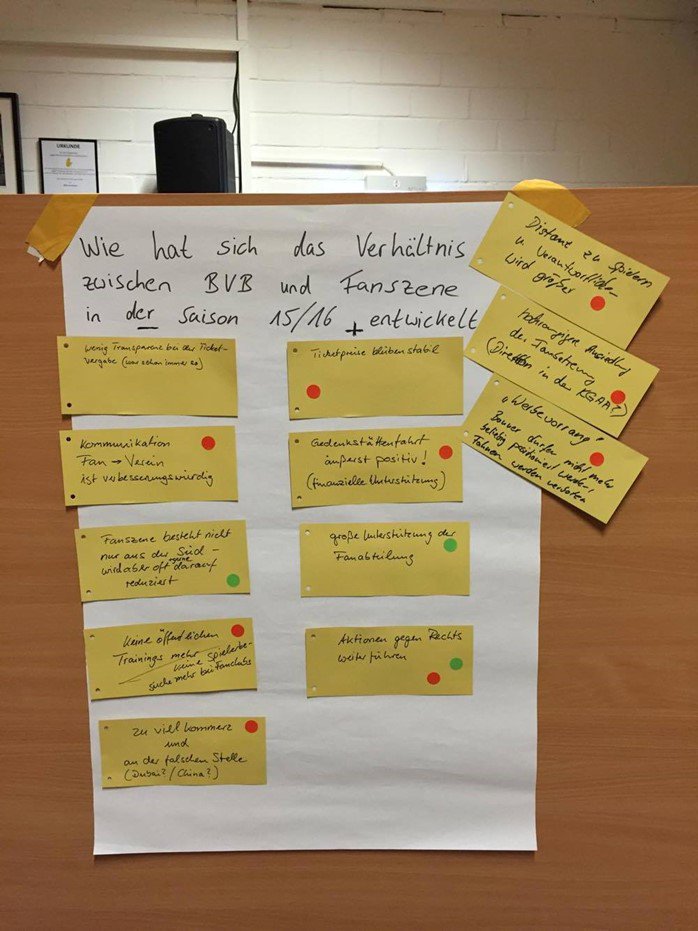 URKUNDE
Wie hat sich das Verhältnis
zwischen BVB und Fanszene
in der Saison 15/16 + entwickelt
wenig Transparenz bei der Ticket-
vergabe (war schon immer so)
Kommunikation
Fan → Verein
ist verbesserungswürdig
Fanszene besteht nicht
nur aus der Süd -
wird aber oft gerne darauf
reduziert
Keine öffentlichen
Trainings mehr
keine Spielerbe-
suche mehr bei Fanclubs
zu viel Kommerz
und
an der falschen Stelle
(Dubai? / China?)
Ticketpreise bleiben stabil
Gedenkstättenfahrt
äußerst positiv!
(finanzielle Unterstützung)
große Unterstützung der
Fanabteilung
Aktionen gegen Rechts
weiterführen
Distanz zu Spielern
u. Verantwortlichen
wird größer
der Fanbetreuung
(Direktion in der KGaA?)
"Werbevorrang"
Banner dürfen nicht mehr
beliebig positioniert werden!
Fahnen werden verboten